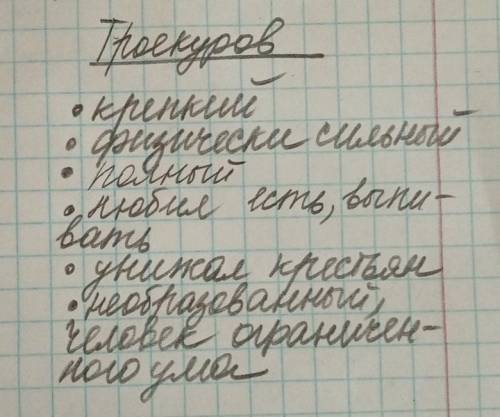 Троекуров
• крепкий
• физически сильный
• полный
• любил есть, выпи-
вать
• унижал крестьян
• необразованный,
человек ограничен-
ного ума